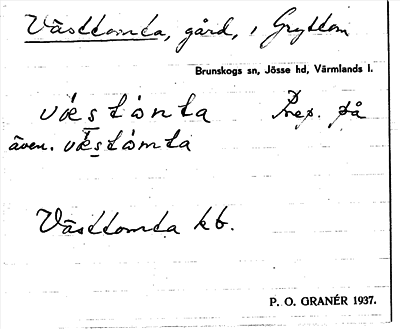 Västtomta, gård, i Gryttom
Brunskogs sn, Jösse hd, Värmlands l.
væstòmta Prep. på
även. væstòmta
Västtomta kb.
P. O. GRANÉR 1937.